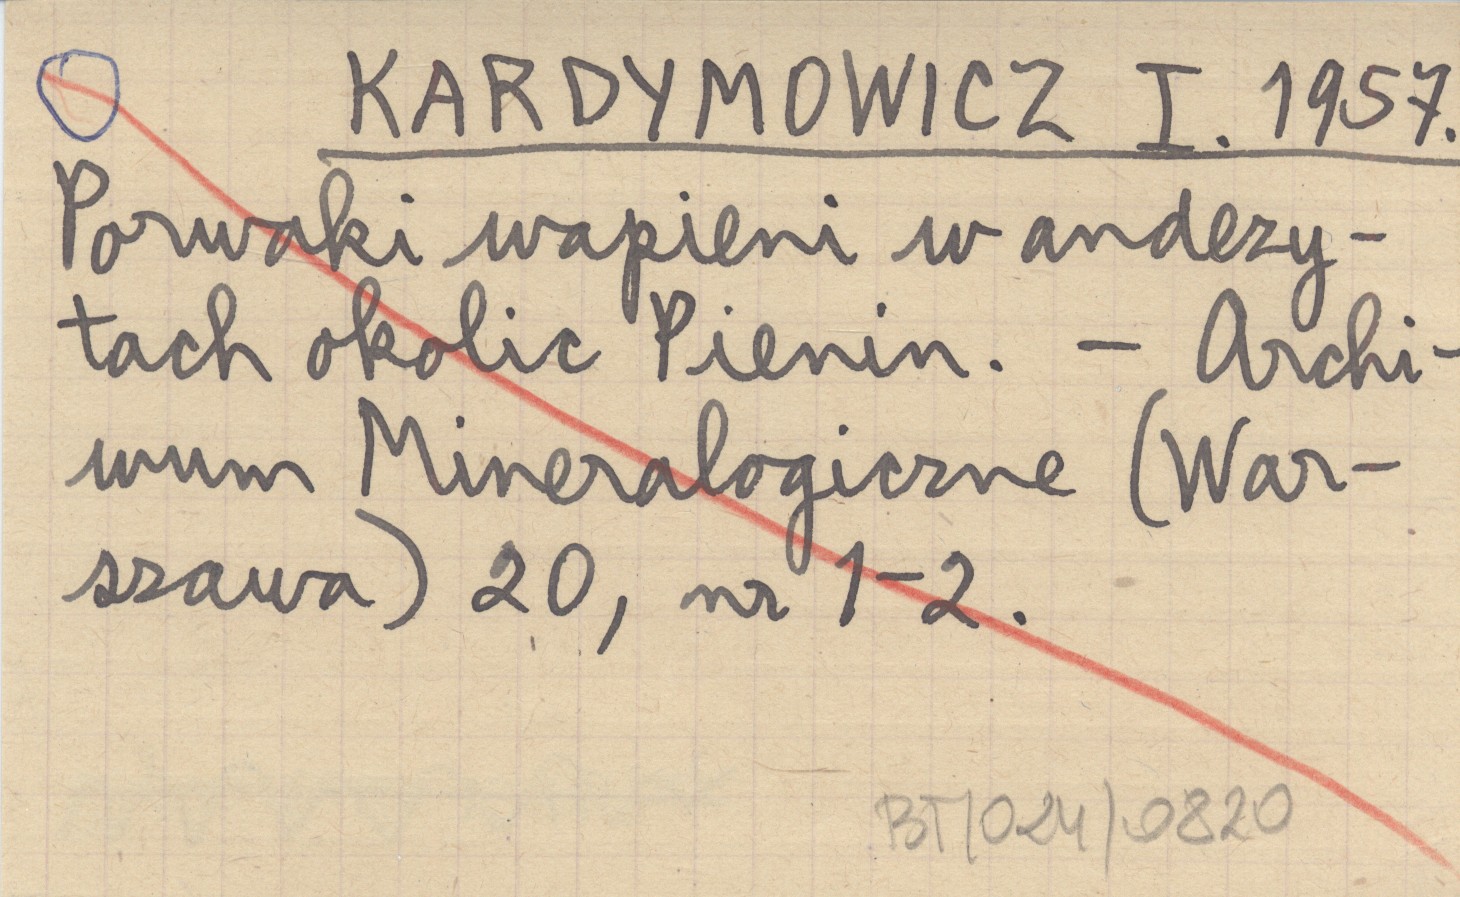 KARDYMOWICZ I. 1957.
Porwaki wapieni w andezy-
tach okolic Pienin. - Archi-
wum Mineralogiczne (War-
szawa) 20, nr 1-2.
BT/024/0820